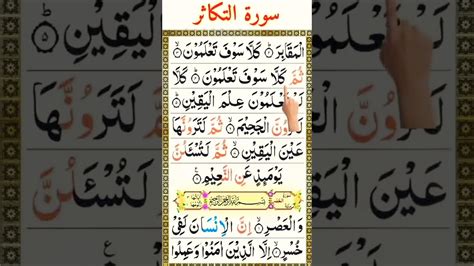 سورة التكاثر
الْمَقَابِرَ ۝ كَلَّا سَوْفَ تَعْلَمُونَ ۝
ثُمَّ كَلَّا سَوْفَ تَعْلَمُونَ ۝ كَلَّا
لَوْ تَعْلَمُونَ عِلْمَ الْيَقِينِ ۝
لَتَرَوُنَّ الْجَحِيمَ ۝ ثُمَّ لَتَرَوُنَّهَا
عَيْنَ الْيَقِينِ ۝ ثُمَّ لَتُسْئَلُنَّ
يَوْمَئِذٍ عَنِ النَّعِيمِ ۝
وَالْعَصْرِ ۝ إِنَّ الْإِنْسَانَ لَفِي
خُسْرٍ ۝ إِلَّا الَّذِينَ آمَنُوا وَعَمِلُوا